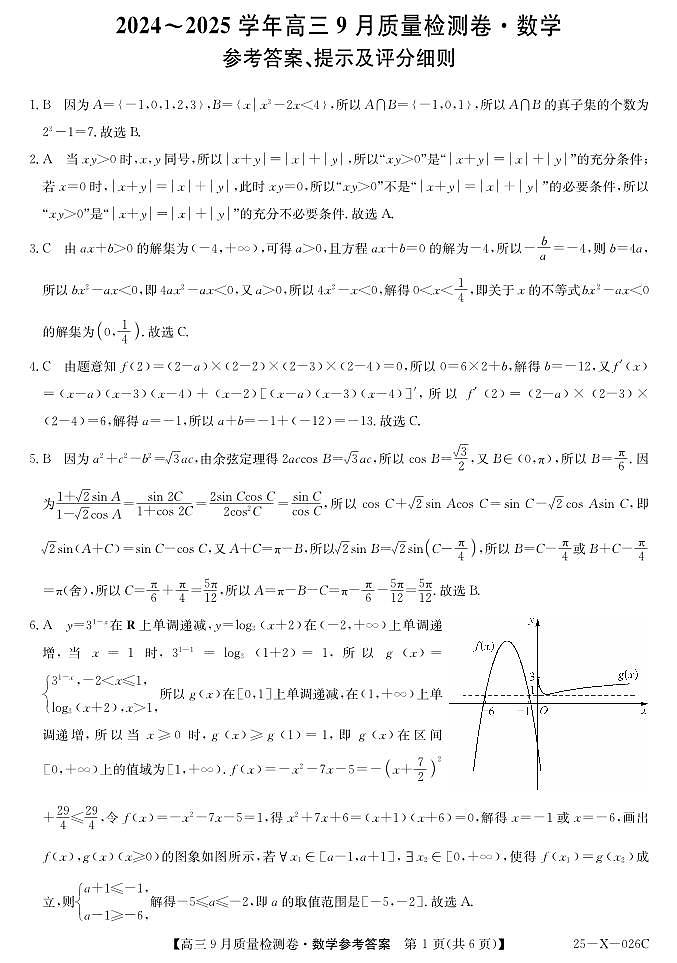 2024～2025 学年高三 9 月质量检测卷·数学
参考答案、提示及评分细则
1. B 因为 A={-1,0,1,2,3},B={x|x²-2x<4},所以 A∩B={-1,0,1},所以 A∩B 的真子集的个数为
2³-1=7. 故选 B.
2. A 当 xy>0 时,x,y 同号,所以|x+y|=|x|+|y|,所以“xy>0”是“|x+y|=|x|+|y|”的充分条件;
若 x=0 时,|x+y|=|x|+|y|,此时 xy=0,所以“xy>0”不是“|x+y|=|x|+|y|”的必要条件,所以
“xy>0”是“|x+y|=|x|+|y|”的充分不必要条件. 故选 A.
3. C 由 ax+b>0 的解集为(-4,+∞),可得 a>0,且方程 ax+b=0 的解为-4,所以-b/a=-4,则 b=4a,
所以 bx²-ax<0,即 4ax²-ax<0,又 a>0,所以 4x²-x<0,解得 0<x<1/4,即关于 x 的不等式 bx²-ax<0
的解集为(0,1/4). 故选 C.
4. C 由题意知 f(2)=(2-a)×(2-2)×(2-3)×(2-4)=0,所以 0=6×2+b,解得 b=-12,又 f′(x)
=(x-a)(x-3)(x-4)+(x-2)[(x-a)(x-3)(x-4)]′,所以 f′(2)=(2-a)×(2-3)×
(2-4)=6,解得 a=-1,所以 a+b=-1+(-12)=-13. 故选 C.
5. B 因为 a²+c²-b²=√3ac,由余弦定理得 2accos B=√3ac,所以 cos B=√3/2,又 B∈(0,π),所以 B=π/6. 因
为(1+√2sin A)/(1-√2cos A)=sin 2C/(1+cos 2C)=2sin Ccos C/2cos²C=sin C/cos C,所以 cos C+√2sin Acos C=sin C-√2cos Asin C,即
√2sin(A+C)=sin C-cos C,又 A+C=π-B,所以√2sin B=√2sin(C-π/4),所以 B=C-π/4或 B+C-π/4
=π(舍),所以 C=π/6+π/4=5π/12,所以 A=π-B-C=π-π/6-5π/12=5π/12. 故选 B.
6. A y=3¹⁻ˣ在 R 上单调递减,y=log₃(x+2)在(-2,+∞)上单调递
增,当 x=1 时,3¹⁻¹=log₃(1+2)=1,所以 g(x)=
{3¹⁻ˣ,-2<x≤1,
log₃(x+2),x>1,
所以 g(x)在[0,1]上单调递减,在(1,+∞)上单
调递增,所以当 x≥0 时,g(x)≥g(1)=1,即 g(x)在区间
[0,+∞)上的值域为[1,+∞). f(x)=-x²-7x-5=-(x+7/2)²
y
f(x)
3
g(x)
1
-6
-1
O
x
+29/4≤29/4,令 f(x)=-x²-7x-5=1,得 x²+7x+6=(x+1)(x+6)=0,解得 x=-1 或 x=-6,画出
f(x),g(x)(x≥0)的图象如图所示,若∀x₁∈[a-1,a+1],∃x₂∈[0,+∞),使得 f(x₁)=g(x₂)成
立,则{a+1≤-1,
a-1≥-6,
解得-5≤a≤-2,即 a 的取值范围是[-5,-2]. 故选 A.
【高三 9 月质量检测卷·数学参考答案 第 1 页(共 6 页)】 25-X-026C